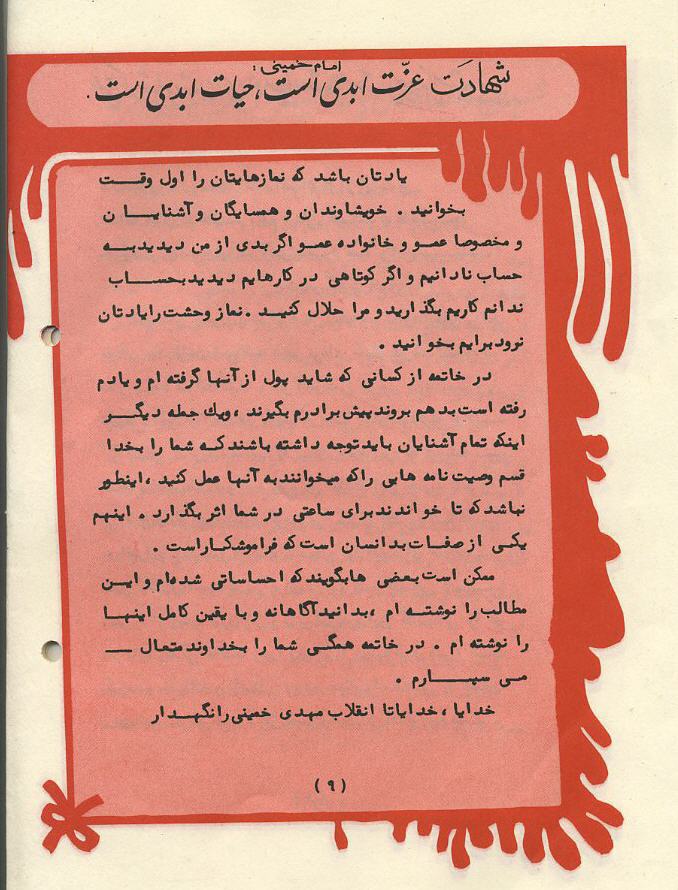 امام خمینی :
شهادت عزّت ابدی است، حیات ابدی است.
یادتان باشد که نمازهایتان را اول وقت
بخوانید . خویشاوندان و همسایگان و آشنایان
و مخصوصا عمو و خانواده عمو اگر بدی از من دیدید به
حساب نادانیم و اگر کوتاهی در کارهایم دیدید بحساب
ندانم کاریم بگذارید و مرا حلال کنید . نماز وحشت را یادتان
نرود برایم بخوانید .
در خاتمه از کسانی که شاید پول از آنها گرفته ام و یادم
رفته است بدهم بروند پیش برادرم بگیرند ، ویك جمله دیگر
اینکه تمام آشنایان باید توجه داشته باشند که شما را بخدا
قسم وصیت نامه هایی را که میخوانند به آنها عمل کنید ، اینطور
نباشد که تا خواندند برای ساعتی در شما اثر بگذارد . اینهم
یکی از صفات بد انسان است که فراموشکار است .
ممکن است بعضی ها بگویند که احساساتی شده ام و این
مطالب را نوشته ام ، بدانید آگاهانه و با یقین کامل اینها
را نوشته ام . در خاتمه همگی شما را بخداوند متعال —
می سپارم .
خدایا ، خدایا تا انقلاب مهدی خمینی را نگهدار
( ۹ )